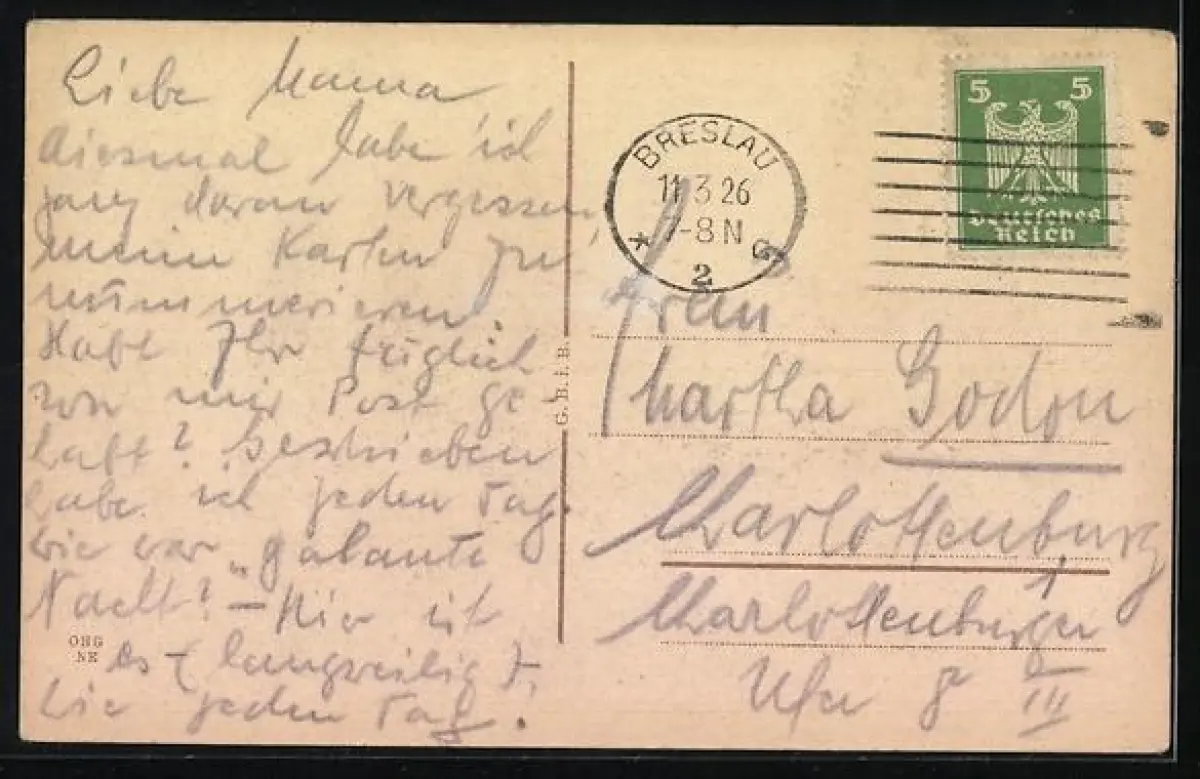 Liebe Mama
diesmal habe ich
ganz daran vergessen,
meine Karten zu
nummerieren.
Habt Ihr täglich
von mir Post ge
habt? Geschrieben
habe ich jeden Tag.
wie war „galante
Nacht? – Hier ist
es langweilig
wie jeden Tag.
ONG
NE
G. B. i. B.
BRESLAU
11.3.26
7-8 N
* 2 G
5 5
Deutsches
Reich
Frau
Martha Godon
Charlottenburg
Charlottenburger
Ufer 8 III